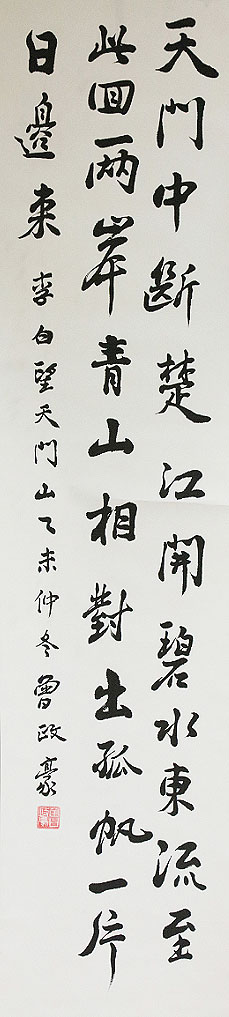 天門中斷楚江開碧水東流至
此回一两岸青山相對出孤帆一片
日邊来李白望天門山乙未仲冬曾政豪